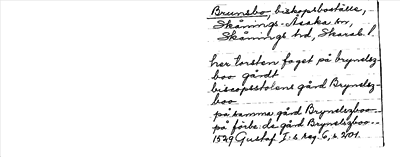 Brunsbo, biskopsboställe,
Skånings-Åsaka sn,
Skånings hd, Skarab. l.
her torsten foget på brynelez-
boo gårdt
biscopsstolens gård Brynelz-
boo
på samma gård Brynelzboo
på förbe:de gård Brynelzboo
1549 Gustaf I:s reg. 6, s. 201.